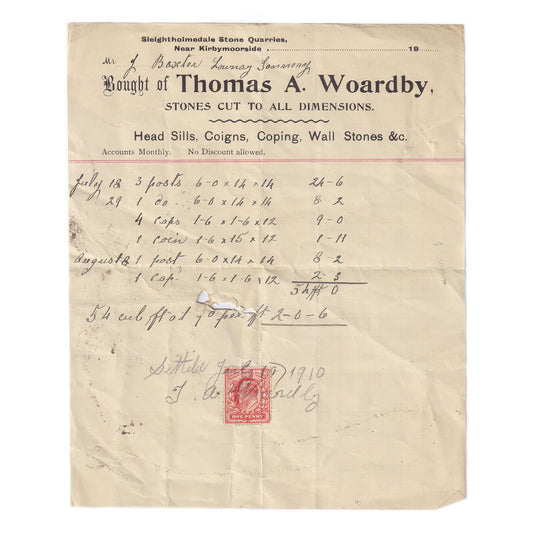 Sleightholmedale Stone Quarries,
Near Kirbymoorside 19
Mr J Baxter
Bought of Thomas A. Woardby,
STONES CUT TO ALL DIMENSIONS.
Head Sills, Coigns, Coping, Wall Stones &c.
Accounts Monthly. No Discount allowed.
July 18 3 posts 6-0 x 14 x 14 24-6
29 1 do 6-0 x 14 x 14 8-2
4 caps 1-6 x 1-6 x 12 9-0
1 coin 1-6 x 15 x 12 1-11
August 8 1 post 6-0 x 14 x 14 8-2
1 cap 1-6 x 1-6 x 12 2-3
54 ft 0
54 cub ft at 9d per ft 2-0-6
Settled July 19 1910
T. A. Woardby
ONE PENNY